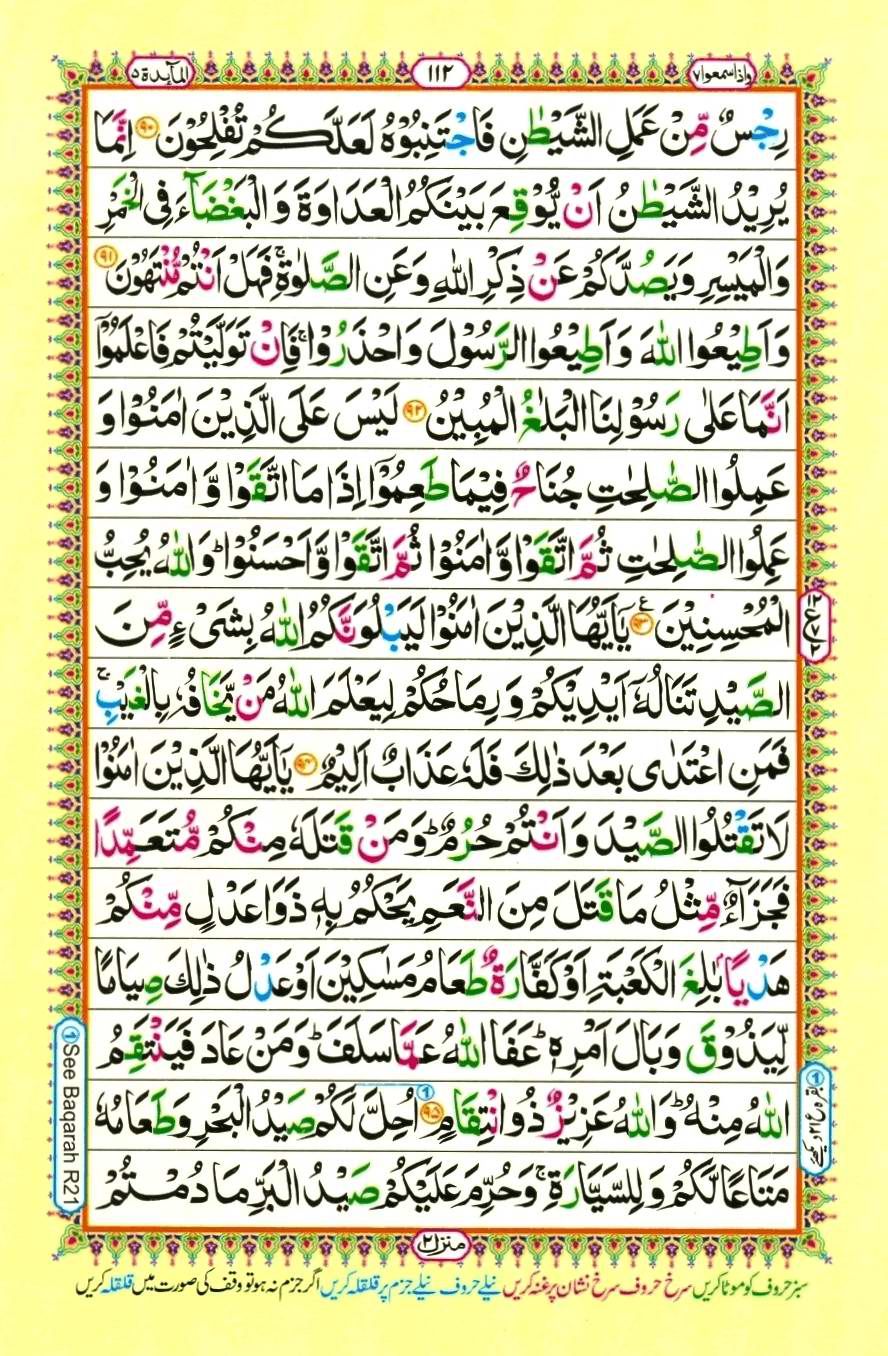 المآىِٕدة ٥
١١٢
واذا سمعوا ٧
رِجْسٌ مِّنْ عَمَلِ الشَّيْطٰنِ فَاجْتَنِبُوْهُ لَعَلَّكُمْ تُفْلِحُوْنَ ﴿٩٠﴾ اِنَّمَا
يُرِيْدُ الشَّيْطٰنُ اَنْ يُّوْقِعَ بَيْنَكُمُ الْعَدَاوَةَ وَ الْبَغْضَآءَ فِي الْخَمْرِ
وَالْمَيْسِرِ وَيَصُدَّكُمْ عَنْ ذِكْرِ اللّٰهِ وَعَنِ الصَّلٰوةِ ۚ فَهَلْ اَنْتُمْ مُّنْتَهُوْنَ ﴿٩١﴾
وَاَطِيْعُوا اللّٰهَ وَاَطِيْعُوا الرَّسُوْلَ وَاحْذَرُوْا ۚ فَاِنْ تَوَلَّيْتُمْ فَاعْلَمُوْۤا
اَنَّمَا عَلٰى رَسُوْلِنَا الْبَلٰغُ الْمُبِيْنُ ﴿٩٢﴾ لَيْسَ عَلَى الَّذِيْنَ اٰمَنُوْا وَ
عَمِلُوا الصّٰلِحٰتِ جُنَاحٌ فِيْمَا طَعِمُوْۤا اِذَا مَا اتَّقَوْا وَّ اٰمَنُوْا وَ
عَمِلُوا الصّٰلِحٰتِ ثُمَّ اتَّقَوْا وَّاٰمَنُوْا ثُمَّ اتَّقَوْا وَّاَحْسَنُوْا ؕ وَاللّٰهُ يُحِبُّ
الْمُحْسِنِيْنَ ﴿٩٣﴾ۧ يٰۤاَيُّهَا الَّذِيْنَ اٰمَنُوْا لَيَبْلُوَنَّكُمُ اللّٰهُ بِشَيْءٍ مِّنَ
الصَّيْدِ تَنَالُهٗۤ اَيْدِيْكُمْ وَ رِمَاحُكُمْ لِيَعْلَمَ اللّٰهُ مَنْ يَّخَافُهٗ بِالْغَيْبِ ۚ
فَمَنِ اعْتَدٰى بَعْدَ ذٰلِكَ فَلَهٗ عَذَابٌ اَلِيْمٌ ﴿٩٤﴾ يٰۤاَيُّهَا الَّذِيْنَ اٰمَنُوْا
لَا تَقْتُلُوا الصَّيْدَ وَاَنْتُمْ حُرُمٌ ؕ وَمَنْ قَتَلَهٗ مِنْكُمْ مُّتَعَمِّدًا
فَجَزَآءٌ مِّثْلُ مَا قَتَلَ مِنَ النَّعَمِ يَحْكُمُ بِهٖ ذَوَا عَدْلٍ مِّنْكُمْ
هَدْيًۢا بٰلِغَ الْكَعْبَةِ اَوْ كَفَّارَةٌ طَعَامُ مَسٰكِيْنَ اَوْ عَدْلُ ذٰلِكَ صِيَامًا
لِّيَذُوْقَ وَبَالَ اَمْرِهٖ ؕ عَفَا اللّٰهُ عَمَّا سَلَفَ ؕ وَمَنْ عَادَ فَيَنْتَقِمُ
اللّٰهُ مِنْهُ ؕ وَاللّٰهُ عَزِيْزٌ ذُو انْتِقَامٍ ﴿٩٥﴾ ① اُحِلَّ لَكُمْ صَيْدُ الْبَحْرِ وَطَعَامُهٗ
مَتَاعًا لَّكُمْ وَلِلسَّيَّارَةِ ۚ وَحُرِّمَ عَلَيْكُمْ صَيْدُ الْبَرِّ مَا دُمْتُمْ
① See Baqarah R21
① بقرہ ع ۲۱ دیکھئے
منزل ٢
سبز حروف کو موٹا کریں سرخ حروف سرخ نشان پر غنہ کریں نیلے حروف نیلے جزم پر قلقلہ کریں اگر جزم نہ ہو تو وقف کی صورت میں قلقلہ کریں